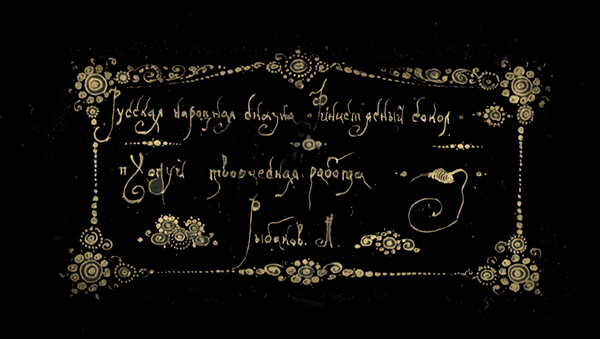 Русская народная сказка "Финист ясный сокол"
п Холуй творческая работа
Рыбаков. Л.